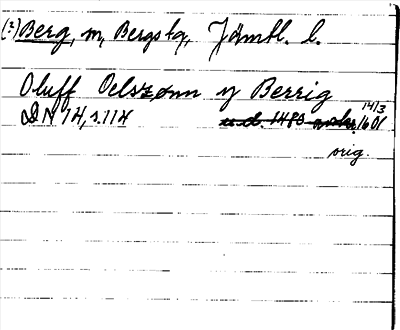 (?) Berg, m, Bergs tg, Jämtl. l.
Oluff Pelszønn y Berrig
DN 14, s. 114 u.d. 1483 14/3 1601
orig.